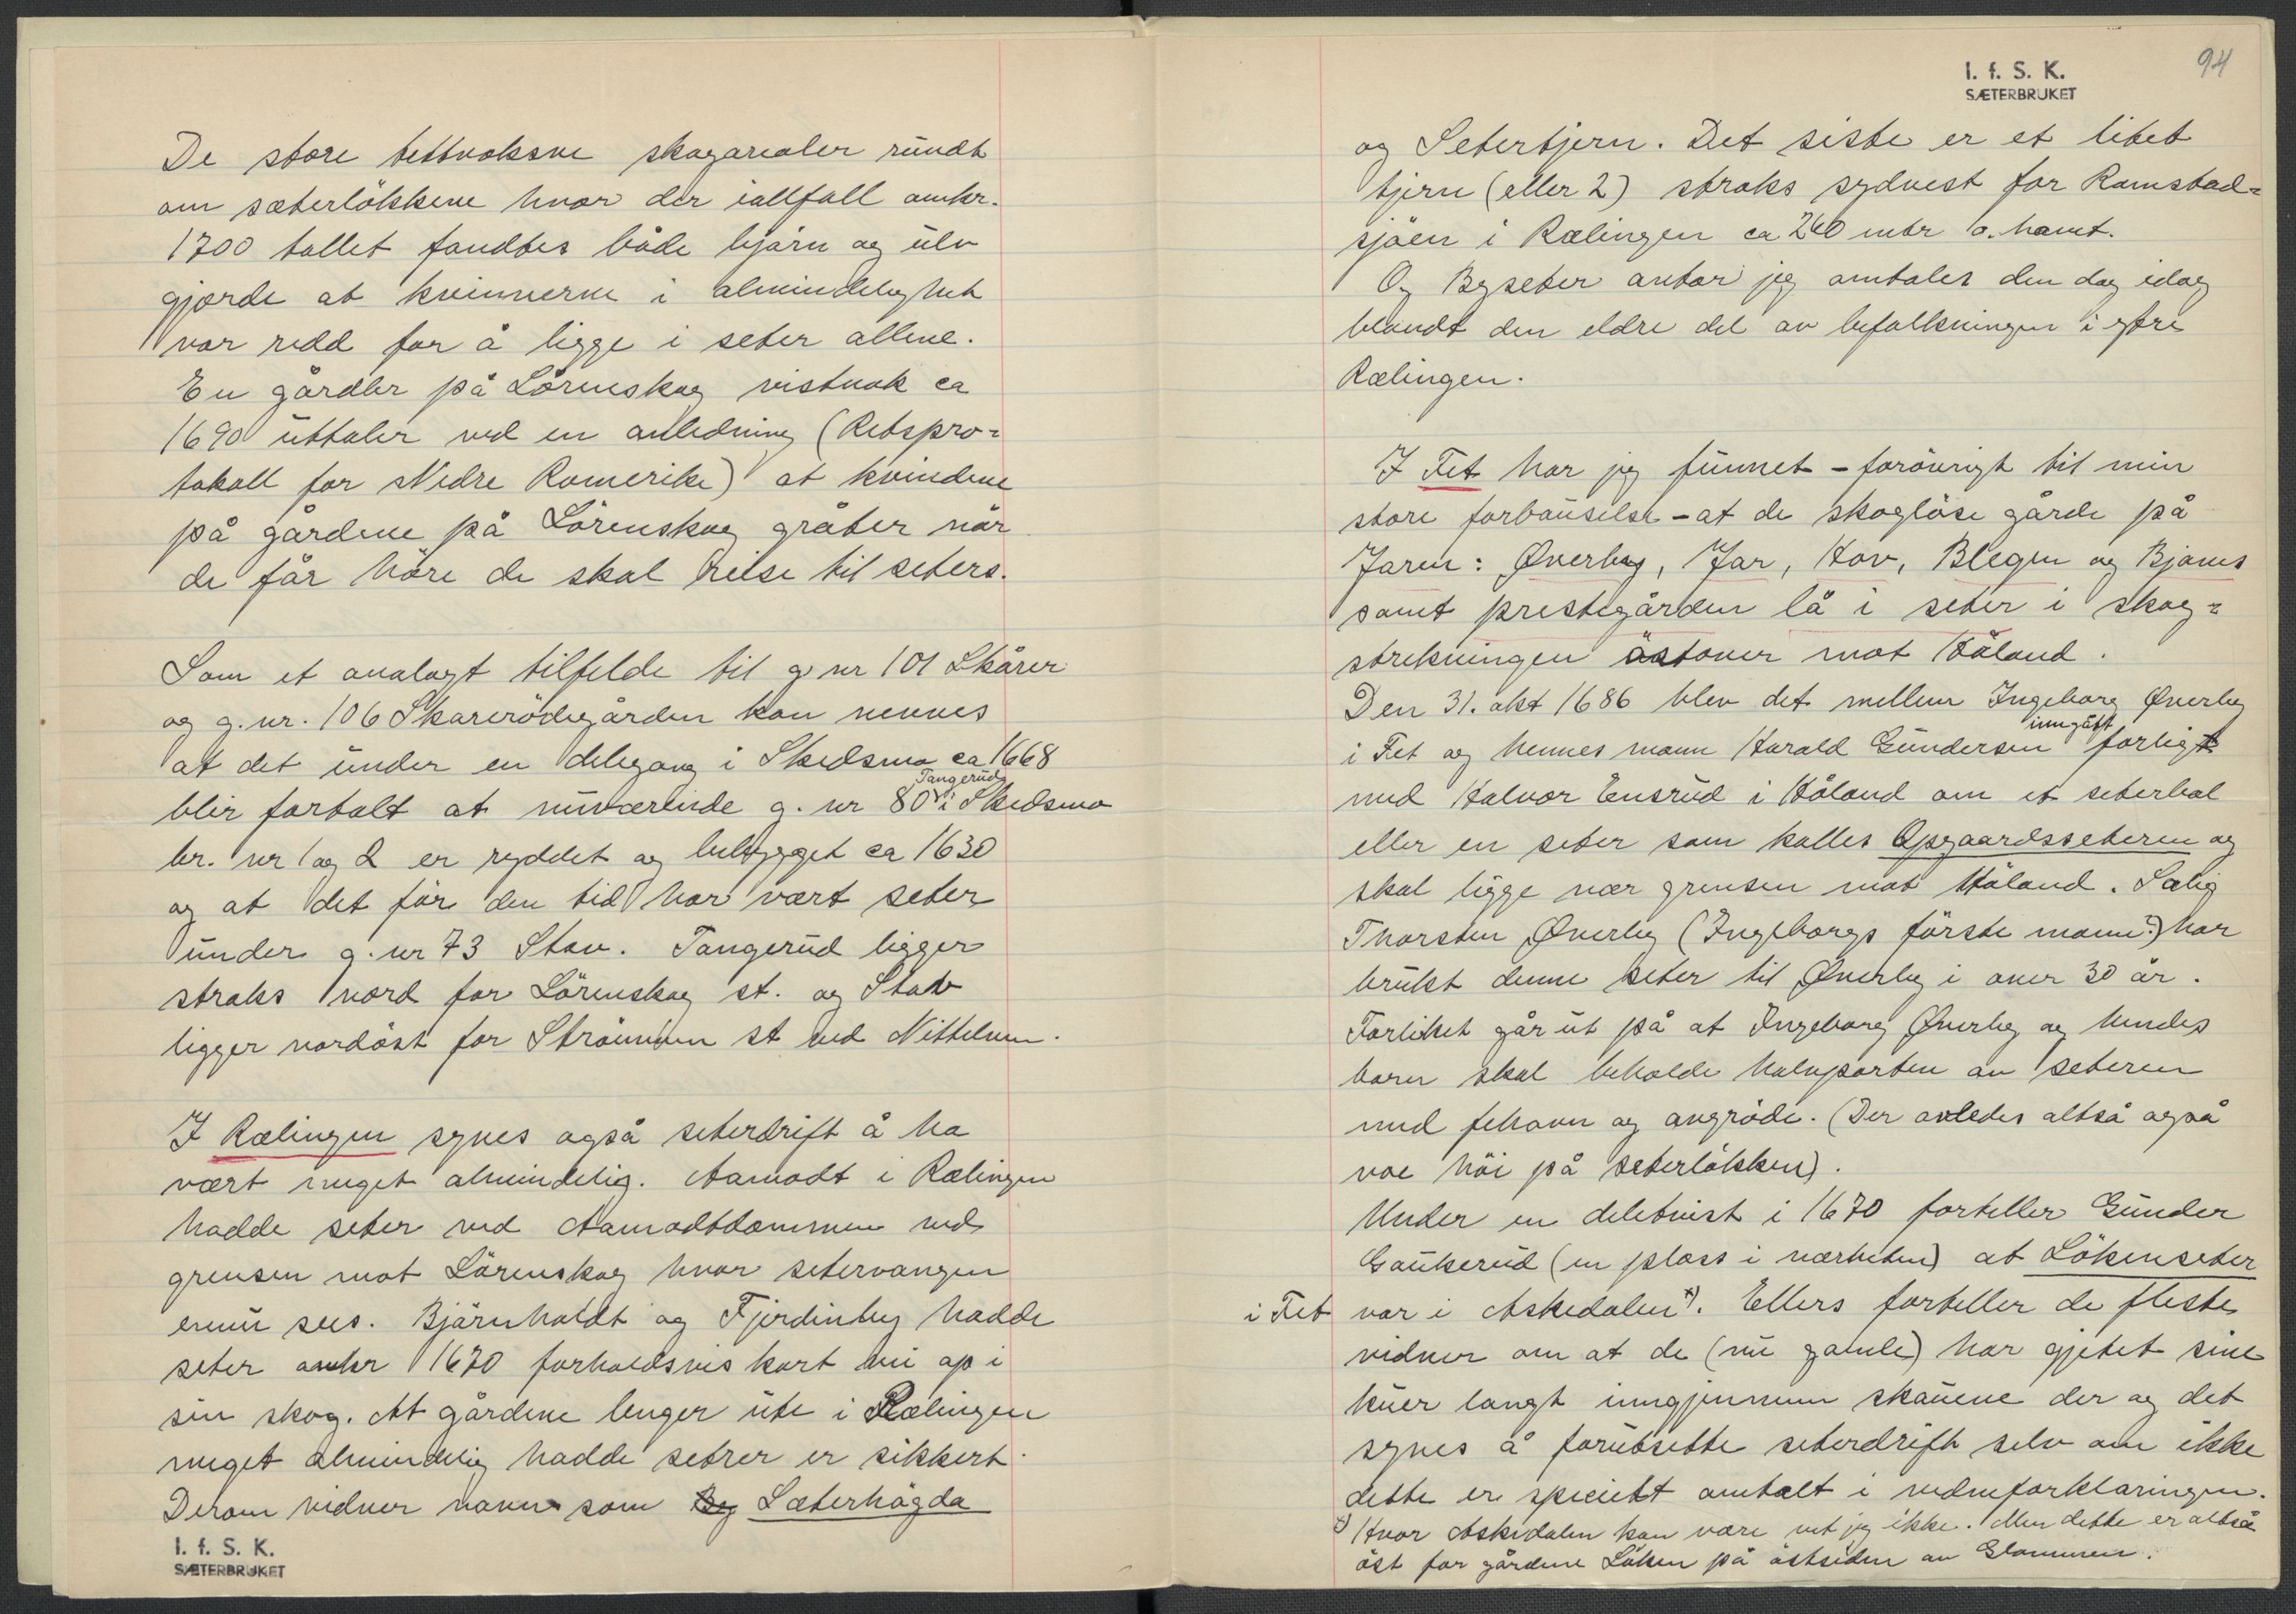 De store tettvoksne skogarealer rundt
om sæterlökkene hvor der iallfall omkr.
1700 tallet fandtes både bjørn og ulv
gjorde at kvinnerne i almindelighet
var redd for å ligge i seter allene.
En gårdbr på Lörenskog vistnok ca
1690 uttaler ved en anledning (Retspro=
tokoll for Nedre Romerike) at kvindene
på gårdene på Lörenskog gråter når
de får höre de skal reise til seters.
Som et analogt tilfelde til g nr 101 Skårer
og g. nr. 106 Skarerödegården kan nevnes
at det under en delegang i Skedsmo ca 1668
Tangerud
blir fortalt at nuværende g. nr 80 i Skedsmo
br. nr 1 og 2 er ryddet og bebygget ca 1630
og at det för den tid har vært seter
under g. nr 73 Stav. Tangerud ligger
straks nord for Lörenskog st. og Stav
ligger nordöst for Strömmen st ved Nittelven.
I Rælingen synes også seterdrift å ha
vært meget almindelig. Aamodt i Rælingen
hadde seter ved Aamodtdammen ved
grensen mot Lörenskog hvor setervangen
ennu sees. Bjørnholdt og Fjerdinby hadde
seter omkr 1670 forholdsvis kort vei op i
sin skog. At gårdene lenger ute i Rælingen
meget almindelig hadde setrer er sikkert.
Derom vidner navne som By Sæterhögda
I. f. S. K.
SÆTERBRUKET
I. f. S. K.
SÆTERBRUKET
94
og Setertjern. Det siste er et litet
tjern (eller 2) straks sydvest for Ramstad=
sjöen i Rælingen ca 240 mtr o. havet.
Og Byseter antar jeg omtales den dag idag
blandt den eldre del av befolkningen i ytre
Rælingen.
I Fet har jeg funnet - forövrigt til min
store forbauselse - at de skoglöse gårde på
Jaren: Øverby, Jar, Hov, Blegen og Bjanes
samt prestegården lå i seter i skog=
strekningen östover mot Höland.
Den 31. okt 1686 blev det mellem Ingeborg Øverby
inngått
i Fet og hennes mann Harald Gundersen forligt
med Halvor Ensrud i Höland om et seterbol
eller en seter som kalles Opgaardsseteren og
skal ligge nær grensen mot Höland. Salig
Thorsten Øverby (Ingeborgs förste mann?) har
brukt denne seter til Øverby i over 30 år.
Forliket går ut på at Ingeborg Øverby og hendes
barn skal beholde halvparten av seteren
med fehavn og avgröde. (Der avledes altså også
noe höi på seterlökken).
Under en deletvist i 1670 forteller Gunder
Gaukerud (en plass i nærheten) at Lökenseter
i Fet var i Askedalen x). Ellers forteller de fleste
vidner om at de (nu gamle) har gjetet sine
kuer langt inngjennem skauene der og det
synes å forutsette seterdrift selv om ikke
dette er specielt omtalt i vidneforklaringen.
x) Hvor Askedalen kan være vet jeg ikke. Men dette er altså
öst for gårdene Löken på östsiden av Glommen.